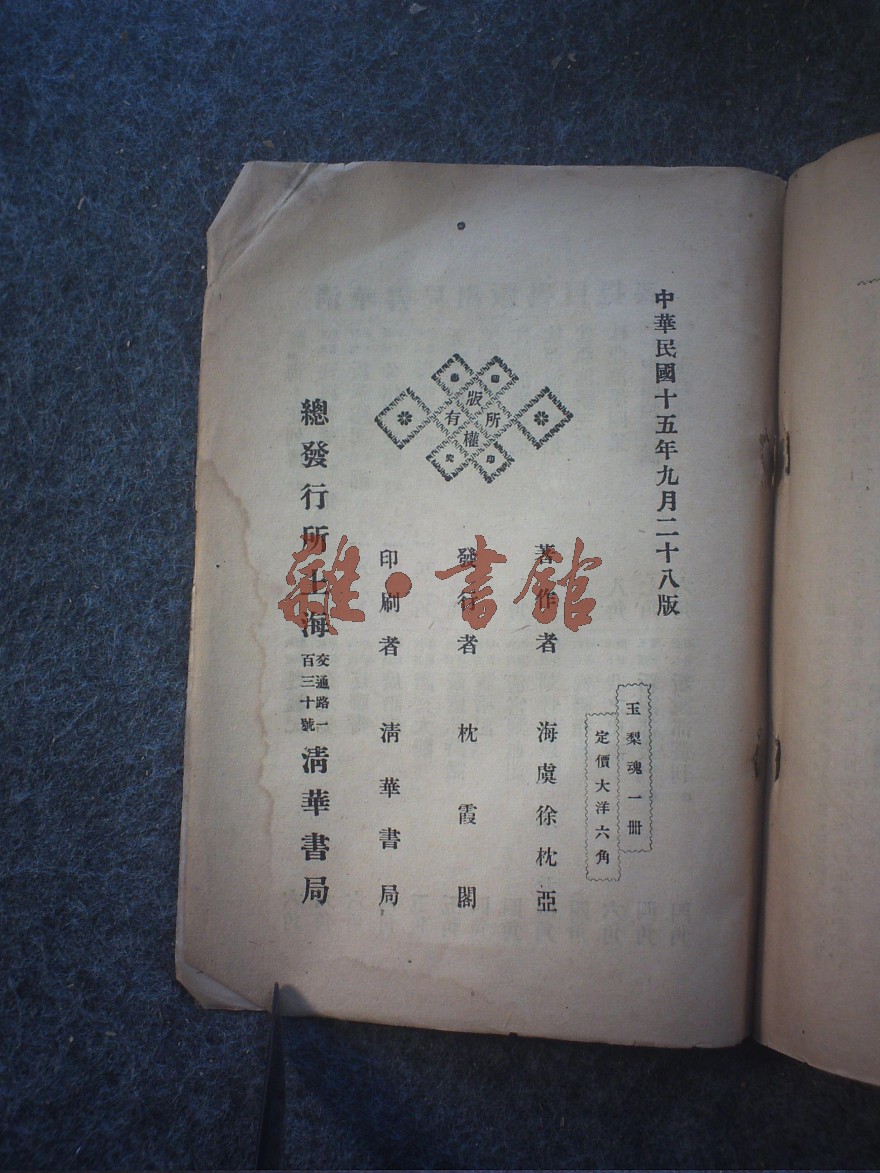 中華民國十五年九月二十八版
玉梨魂一冊
定價大洋六角
版權所有
著作者 海虞徐枕亞
發行者 枕霞閣
印刷者 清華書局
總發行所上海交通路一百三十號清華書局
雜·書館